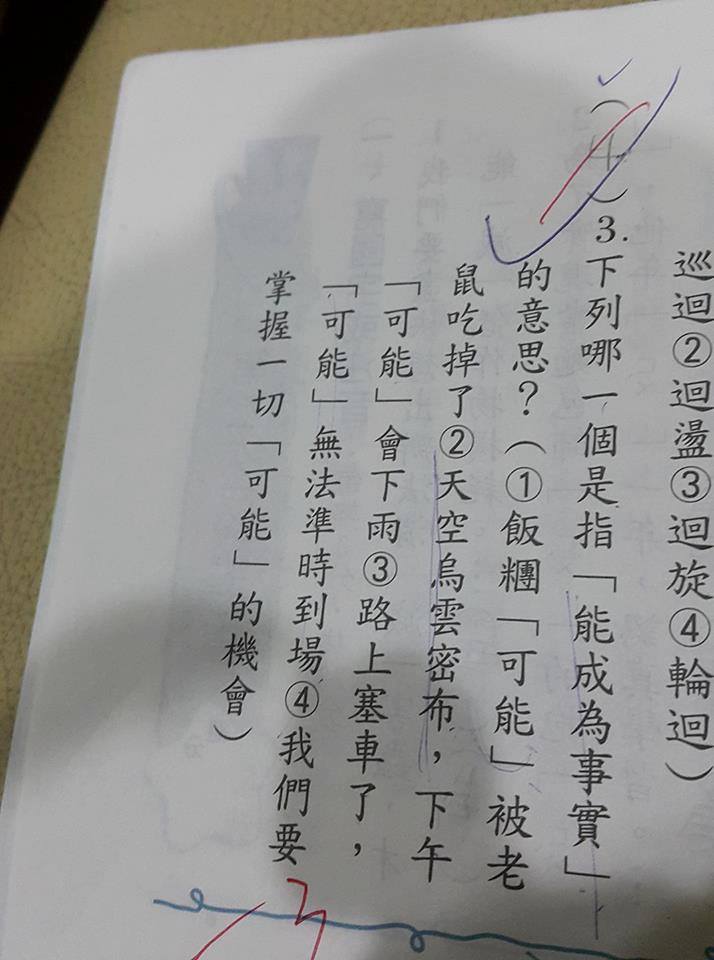 巡迴②迴盪③迴旋④輪迴）
（4）3.下列哪一個是指「能成為事實」
的意思？（①飯糰「可能」被老
鼠吃掉了②天空烏雲密布，下午
「可能」會下雨③路上塞車了，
「可能」無法準時到場④我們要
掌握一切「可能」的機會）